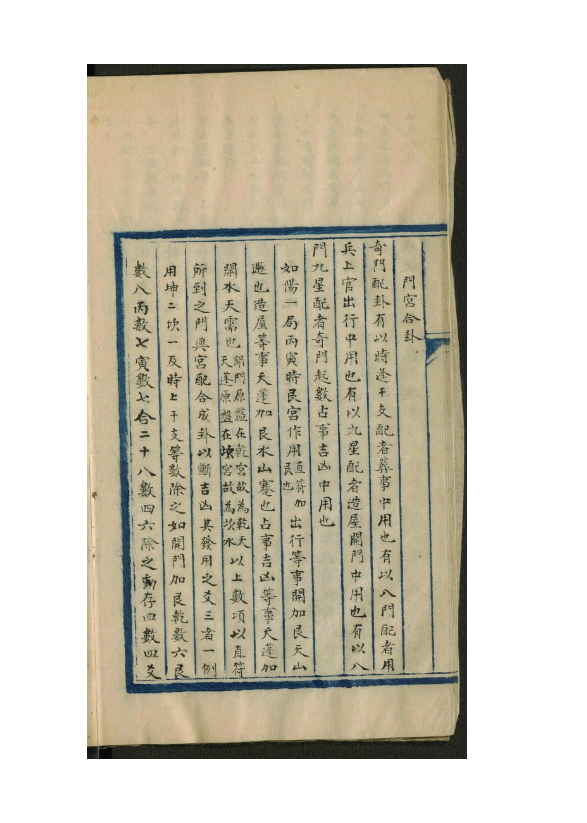 門宮合卦
奇門配卦有以時逢干支配者葬事中用也有以八門配者用
兵上官出行中用也有以九星配者造屋開門中用也有以八
門九星配者奇門起數占事吉凶中用也
如陽一局丙寅時艮宮作用直符加艮也出行等事開加艮天山
遯也造屋等事天蓬加艮水山蹇也占事吉凶等事天蓬加
開水天需也開門原盤在乾宮故為乾天天蓬原盤在坎宮故為坎水以上數項以直符
所到之門與宮配合成卦以斷吉凶其發用之爻三者一例
用坤二坎一及時上干支等數除之如開門加艮乾數六艮
數八丙數七寅數七合二十八數四六除之動存四數四爻